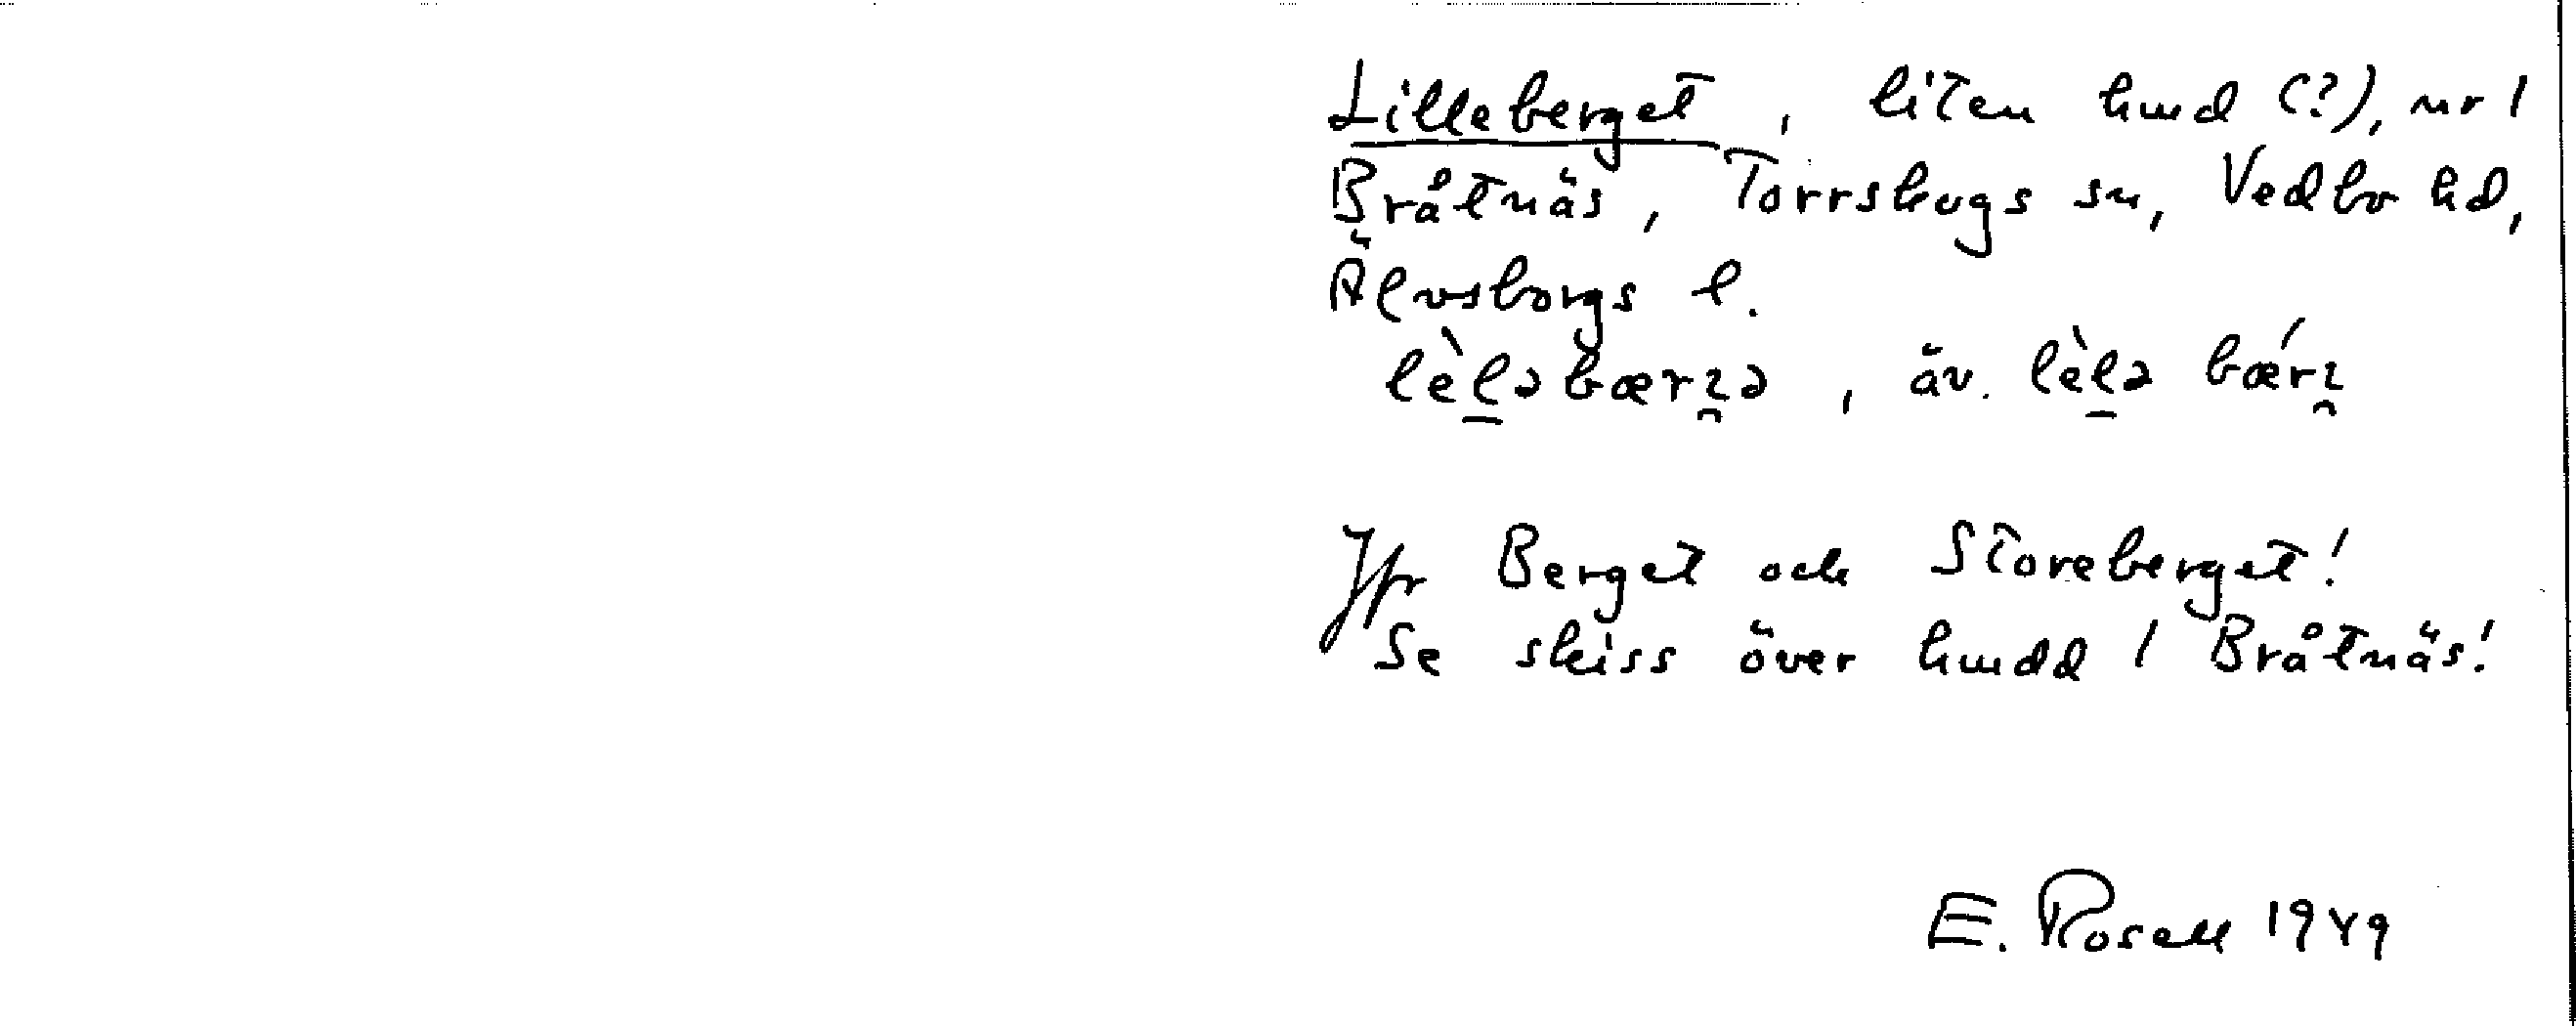 Lilleberget, liten hmd (?), nr 1
Bråtnäs, Torrskogs sn, Vedbo hd,
Älvsborgs l.
lèl̠əbærɀ̯ə, äv. lèl̠ə bǽrɀ̯
Jfr Berget och Storeberget!
Se skiss över hmdd 1 Bråtnäs!
E. Rosell 1949